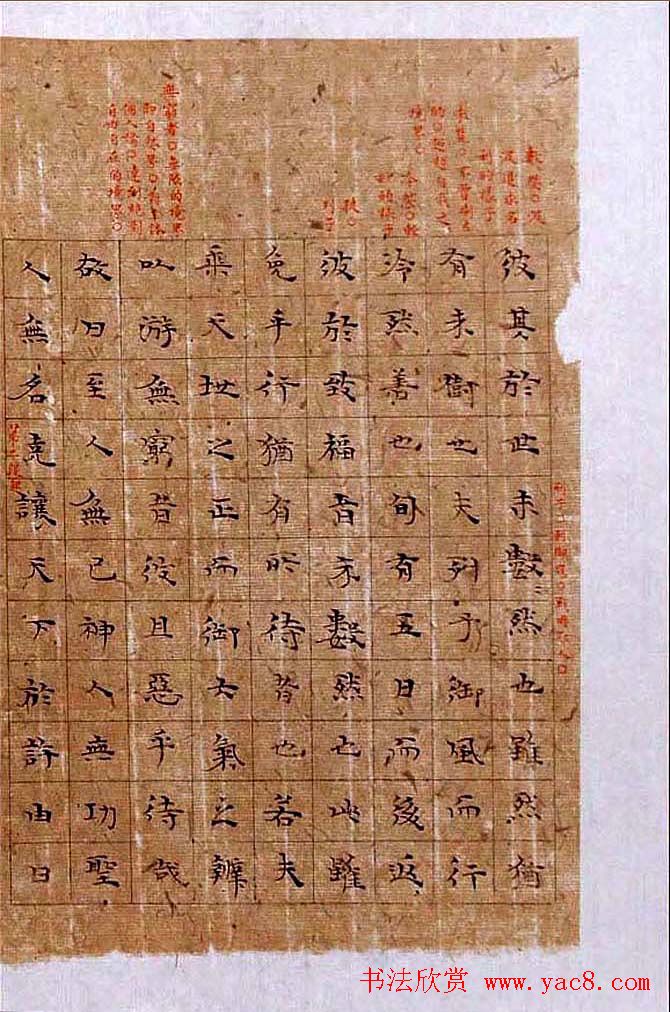 及追求名
利的樣子
的樣子
列子
彼其於世未數々然也雖然猶
有未樹也夫列子御風而行
冷然善也旬有五日而後返
彼於致福者未數然也此雖
免乎行猶有所待者也若夫
乘天地之正而御六氣之辯
以游無窮者彼且惡乎待哉
故曰至人無己神人無功聖
人無名堯讓天下於許由曰
书法欣赏 www.yac8.com